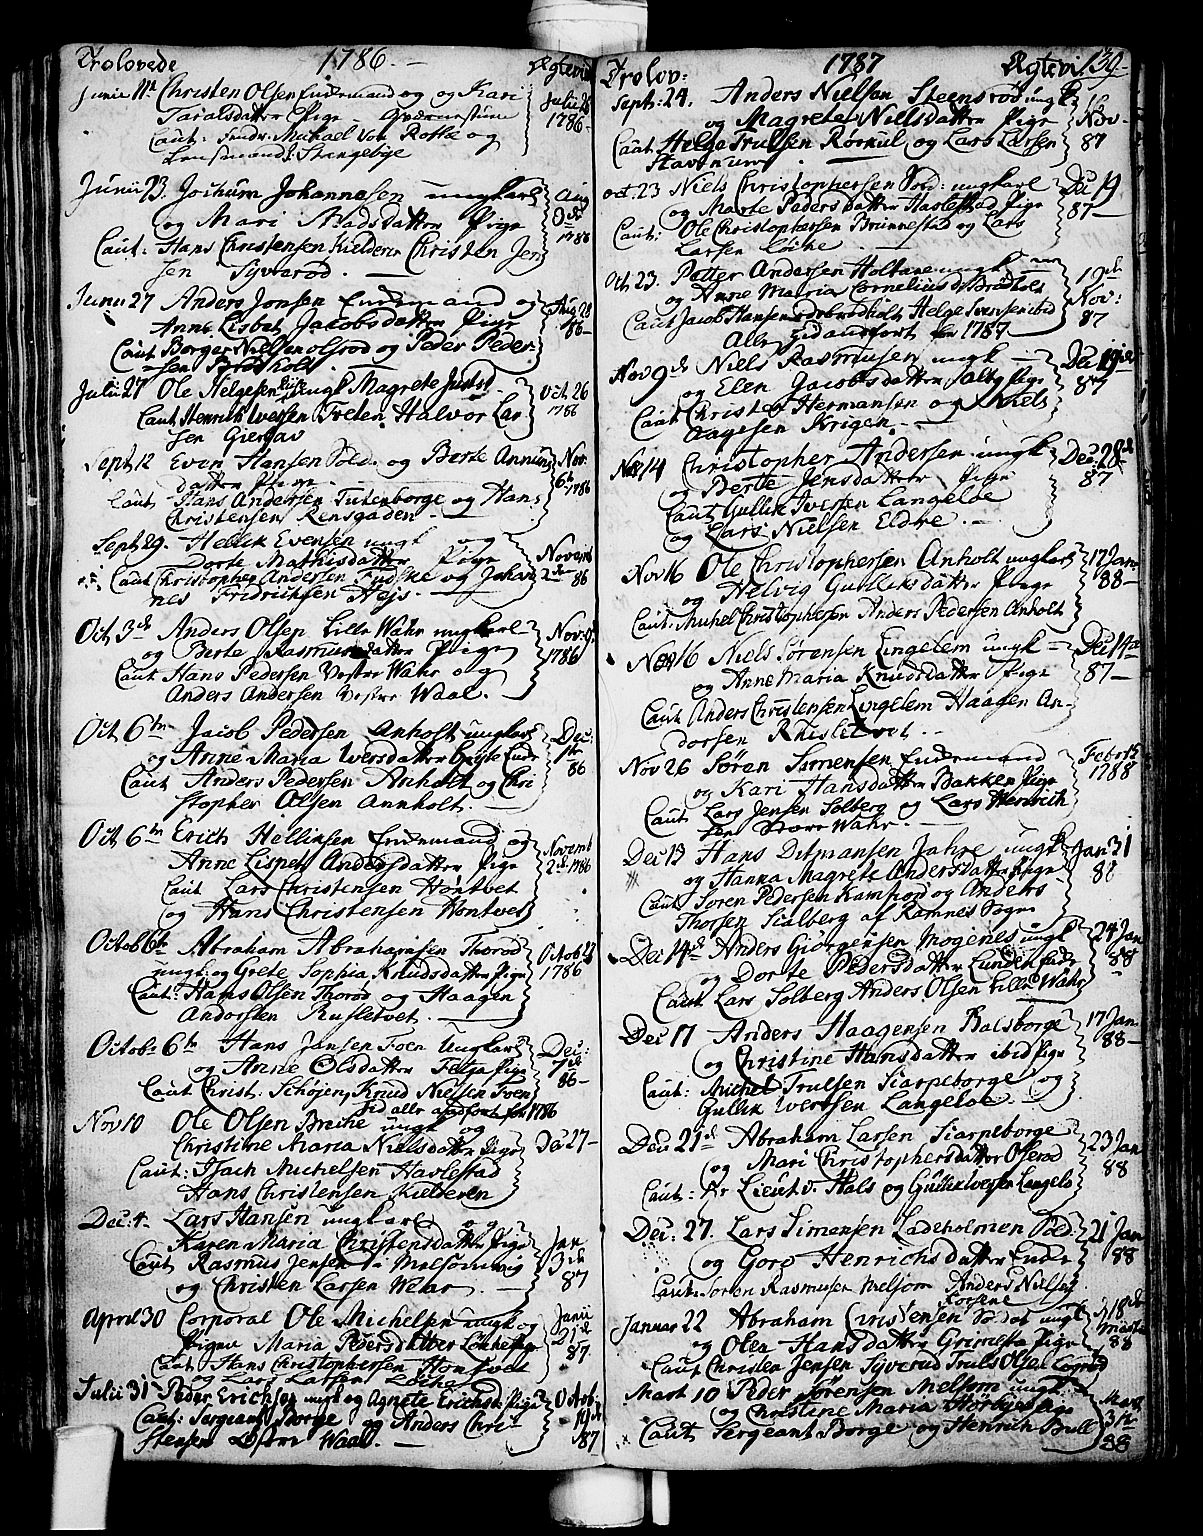 Trolovede 1786. Ægtevi
Junii 11te Christen Olsen Enkemand og Kari
Taralsdatter Pige Julii 28 1786
Caut: Michael von og
Lensmand Stangebye
Junii 23. Jochum Johannesen ungkarl
og Mari Madsdatter Pige Aug 1786
Caut: Hans Christensen Kielderen Christen Jen
sen Syverød.
Junii 27 Anders Jonsen Enkemand og
Anne Lisbet Jacobsdatter Pige Aug 28 86
Caut Børger Nielsen Olsrod og Peder Peder
sen Brødskold
Julii 27 Ole Helgesen ungk Magrete
Oct 26 1786
Caut Henrich Iversen Freten Halvor Lar
sen Giersøe
Sept 12 Even Hansen Sold. og Berte
datter Pige Nov. 6te 1786
Caut Hans Andersen Tutenborge og Hans
Christensen Rensgaden
Sept 29. Hellik Evensen ungk og
Dorte Mathisdatter Pige Novemb 2den 86
Caut Christopher Andersen og Johan
nes Fridrichsen Hejs.
Oct 3de Anders Olsen Lille Wahr ungkarl
og Berte Rasmusdatter Pige Nov: 1786
Caut Hans Pedersen Vestre Wahr og
Anders Andersen Vestre Waal.
Oct 6te Jacob Pedersen Anholt ungkarl
og Anne Maria Iversdatter Enke Dec: 1te 86
Caut Anders Pedersen Anholt og Chri
stopher Olsen Annholt.
Oct 6te Erich Hellicksen Enkemand og
Anne Lispet Andersdatter Pige Novemb 2de 1786
Caut Lars Christensen Hontvet
og Hans Christensen Hontvet
Octob 6te Abraham Abrahamsen Thorød
ungk og Grete Sophia Knudsdatter Pige Octob 27 1786
Caut: Hans Olsen Thorød og Haagen
Andersen
Octobr 6te Hans Jansen Foen Ungkarl
og Anne Olsdatter Feija Pige Dec: 7de 86
Caut Christ: Schöjen, Knud Nielsen Foen
til alle anført for 1786
Nov 10 Ole Olsen Breche ungk og
Christine Maria Nielsdatter Pige Dec 27
Caut: Isach Michelsen Haslestad
Hans Christensen Kielderen
Dec: 4. Lars Hansen ungkarl og
Karen Maria Christensdatter Pige Jan 3de 87
Caut Rasmus Jensen Melsomvig
og Christen Larsen Wear.
April 30 Corporal Ole Michelsen ungk og
Pigen Maria Pedersdatter Junii 21de 87
Caut Hans Christophersen Hontvet
og Lars Larsen
Julii 31 Peder Erichsen ungk og Agnete Erichsd Pige Octob 87
Caut: Sergeant Borge og Anders Chri
stensen Østre Waal.
Trolov: 1787 Ægtevi 130
Sept: 24. Anders Nielsen Steensrød ungk
og Magrete Nielsdatter Pige 16 Nov 87
Caut Helge Trulsen Rørkul og Lars Larsen
Stavnum
Oct 23 Niels Christophersen Sold: ungkarl
og Marte Pedersdatter Haslestad Pige Dec 19 87
Caut: Ole Christophersen Brunnestad og Lars
Larsen
Oct 23. Petter Andersen Holtane ungk
og Anne Maria Cornelius D Brødskol 19de Nov: 87
Caut Jacob Hansen Helge Svensen ibid
Alle tid anført for 1787
Nov 9de Niels Rasmusen ungk
og Elen Jacobsdatter Pige Dec 19de 87
Caut Christen Hermansen og Niels
Aagesen Krigen
Nov 14 Christopher Andersen ungk
og Berte Jensdatter Pige Dec: 28de 87
Caut Gullik Iversen Langeloe
og Lars Nielsen Eldre.
Nov 16 Ole Christophersen Anholt ungkarl
og Helvig Gulliksdatter Pige 17 Jan 88
Caut: Michel Christophersen Anders Pedersen Anholt
Nov 16 Niels Sørensen Lingelem ungk
og Anne Maria Knudsdatter Pige Dec 14 87
Caut Anders Christensen Lingelem Haagen An
dersen
Nov 26 Søren Simensen Enkemand
og Kari Hansdatter Bakken Pige Febr 15 1788
Caut Lars Jensen Solberg og Lars Henrich
sen Store Wahr
Dec 13 Hans Ditmansen Jahre ungk
og Hanna Magrete Andersdatter Pige Jan 31 88
Caut Søren Pedersen Kamfiord og Anders
Thorsen Sialberg af Ramnes Sogn
Dec 14de Anders Giörgensen Mogenes ungk
og Dorte Pedersdatter Lunden Enke 24 Jan 88
Caut Lars Solberg Anders Olsen Lille Wahr
Dec 17 Anders Haagensen Basborge
og Christine Hansdatter ibid Pige 17 Jan 88
Caut: Michel Trulsen Skarpeborge og
Gullik Iversen Langeloe.
Dec: 21de Abraham Larsen Skarpeborge
og Mari Christophersdatter Olsrød 23 Jan 88
Caut: Hr Lieut v. Hals og Gullik Iversen Langelo
Dec: 27. Lars Simensen Ladeholmen Sold
og Goro Henrichsdatter Enke 21 Jan 88
Caut: Søren Rasmusen Melsom Anders Nielsen
Januar 22 Abraham Christensen Soldat ungk
og Olea Hansdatter Grimestad Pige 88
Caut Christen Jensen Syverød Truls Olsen
Mart 10 Peder Sørensen Melsom ungk
og Christine Maria Pige Mart 31te 88
Caut Sergeant Borge og Henrich Bull